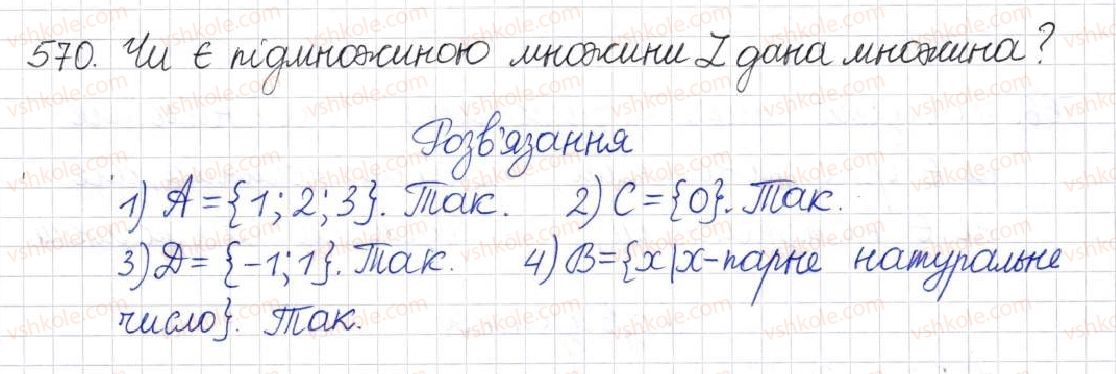 570. Чи є підмножиною множини Z дана множина?
Розв'язання
1) A = {1; 2; 3}. Так. 2) C = {0}. Так.
3) D = {-1; 1}. Так. 4) B = {x|x-парне натуральне
число}. Так.